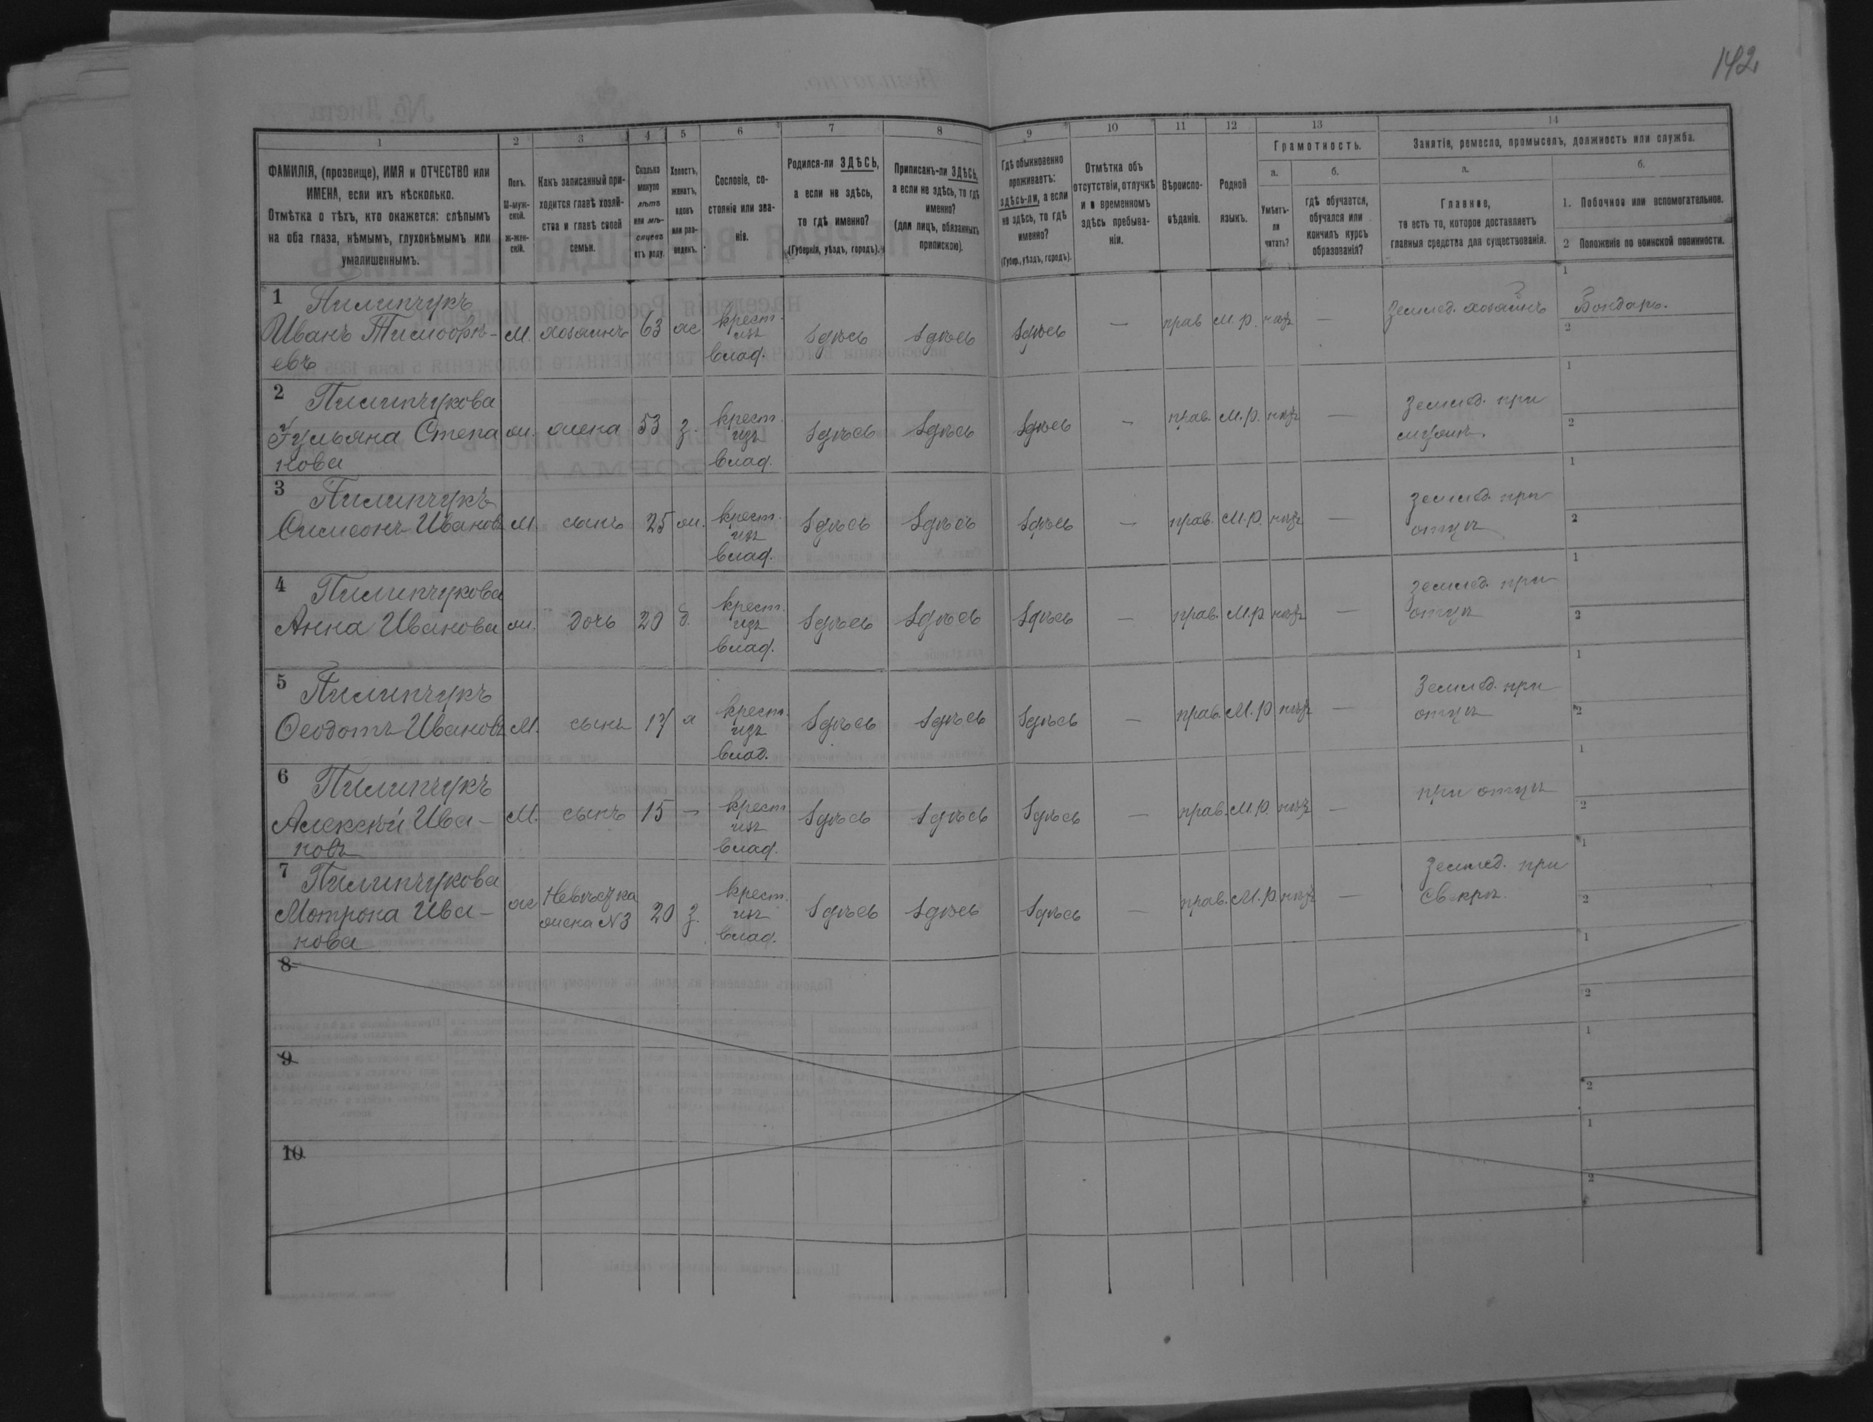 142
1 2 3 4 5 6 7 8 9 10 11 12 13 14
ФАМИЛІЯ, (прозвище), ИМЯ и ОТЧЕСТВО или
ИМЕНА, если ихъ нѣсколько.
Отмѣтка о тѣхъ, кто окажется: слѣпымъ
на оба глаза, нѣмымъ, глухонѣмымъ или
умалишеннымъ.
Полъ.
М-муж-
ской.
ж-жен-
скій.
Какъ записанный при-
ходится главѣ хозяй-
ства и главѣ своей
семьи.
Сколько
минуло
лѣтъ
или мѣ-
сяцевъ
отъ роду.
Холостъ,
женатъ,
вдовъ
или раз-
веденъ.
Сословіе, со-
стояніе или зва-
ніе.
Родился-ли ЗДѢСЬ,
а если не здѣсь,
то гдѣ именно?
(Губернія, уѣздъ, городъ).
Приписанъ-ли ЗДѢСЬ,
а если не здѣсь, то гдѣ
именно?
(для лицъ, обязанныхъ
припискою).
Гдѣ обыкновенно
проживаетъ:
здѣсь-ли, а если
не здѣсь, то гдѣ
именно?
(Губер., уѣздъ, городъ).
Отмѣтка объ
отсутствіи, отлучкѣ
и о временномъ
здѣсь пребыва-
ніи.
Вѣроиспо-
вѣданіе.
Родной
языкъ.
Грамотность.
а.
Умѣетъ-
ли
читать?
б.
гдѣ обучается,
обучался или
кончилъ курсъ
образованія?
Занятіе, ремесло, промыселъ, должность или служба.
а.
Главное,
то есть то, которое доставляетъ
главныя средства для существованія.
б.
1. Побочное или вспомогательное.
2 Положеніе по воинской повинности.
1 Пилипчукъ
Иванъ Тимоѳѣ-
евъ
М. хозяинъ 63 ж крест. изъ влад. здѣсь здѣсь здѣсь — прав М.р. нѣтъ — Землед. хозяинъ
1 Бондарь.
2
2 Пилипчукова
Ульяна Степа
нова
ж. жена 53 з. крест. изъ влад. здѣсь здѣсь здѣсь — прав. М.р. нѣтъ — Землед. при
мужѣ.
1
2
3 Пилипчукъ
Симеонъ Иванов
М сынъ 25 ж. крест. изъ влад. здѣсь здѣсь здѣсь — прав. М.р. нѣтъ — землед. при
отцѣ
1
2
4 Пилипчукова
Анна Иванова
ж. дочь 20 д. крест. изъ влад. здѣсь здѣсь здѣсь — прав. М.р нѣтъ — землед. при
отцѣ
1
2
5 Пилипчукъ
Ѳеодотъ Ивановъ
М. сынъ 17 крест. изъ влад. здѣсь здѣсь здѣсь — прав. М.р нѣтъ — Землед. при
отцѣ
1
2
6 Пилипчукъ
Алексѣй Ива-
новъ
М. сынъ 15 — крест. изъ влад. здѣсь здѣсь здѣсь — прав. М.р. нѣтъ — при отцѣ
1
2
7 Пилипчукова
Мотрона Ива-
нова
ж Невѣстка
жена N3 20 з. крест. изъ влад. здѣсь здѣсь здѣсь — прав. М.р нѣтъ — землед. при
свекрѣ.
1
2
8
1
2
9
1
2
10
1
2